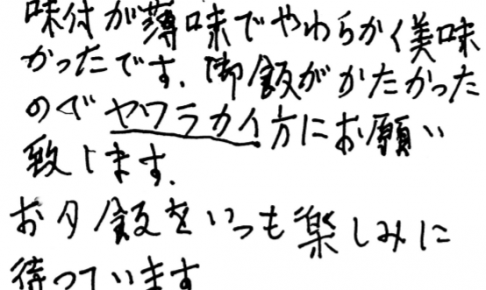 味付が薄味でやわらかく美味
かったです。御飯がかたかった
ので ヤワラカイ方にお願い
致します。
お夕飯をいつも楽しみに
待っています